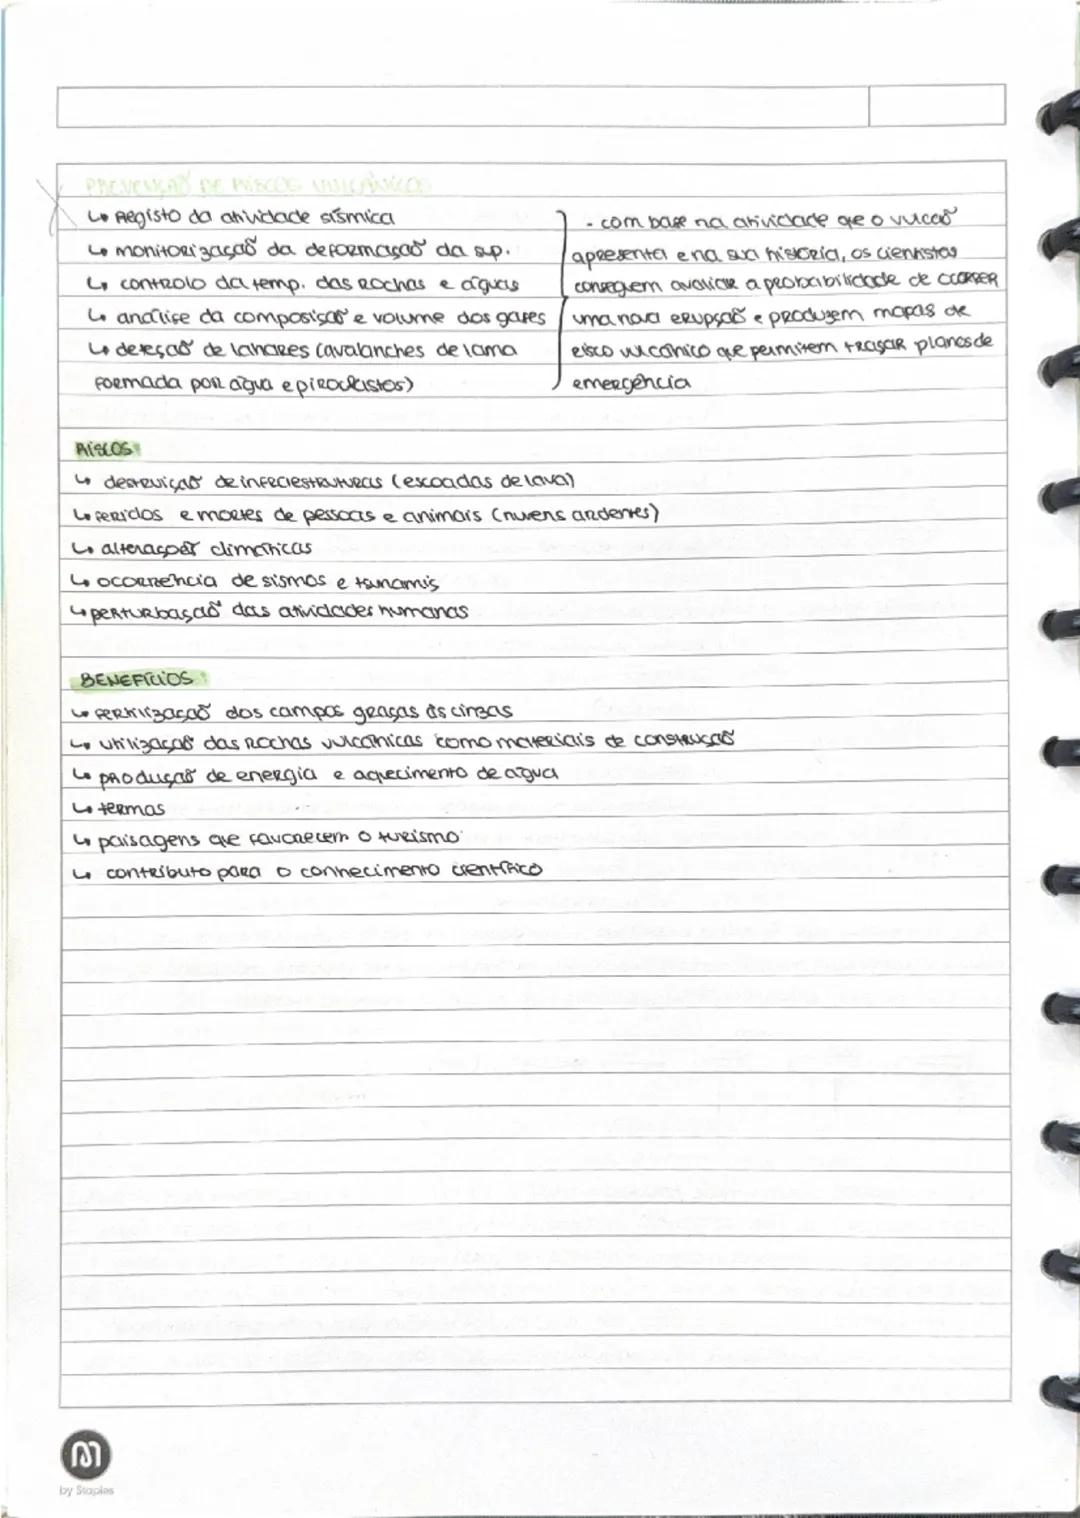 PREVENÇÃO DE RISCOS VULCÂNICOS
↳ Registo da atividade sísmica
↳ monitorização da deformação da sup.
↳ controlo da temp. das rochas e águas
↳ análise da composição e volume dos gases
↳ deteção de lahares (avalanches de lama
formada por água e piroclastos)
- com base na atividade que o vulcão
apresenta e na sua história, os cienhstas
conseguem avaliar a probabilidade de ocorrer
uma nova erupção e produzem mapas de
risco vulcânico que permitem traçar planos de
emergência
RISCOS:
↳ destruição de infraestruturas (escoadas de lava)
↳ feridos e mortes de pessoas e animais (nuvens ardentes)
↳ alterações climáticas
↳ ocorrência de sismos e tsunamis
↳ perturbação das atividades humanas
BENEFÍCIOS:
↳ fertilização dos campos graças às cinzas
↳ utilização das rochas vulcânicas como materiais de construção
↳ produção de energia e aquecimento de água
↳ termas
↳ paisagens que favorecem o turismo
↳ contributo para o conhecimento científico
by Staples